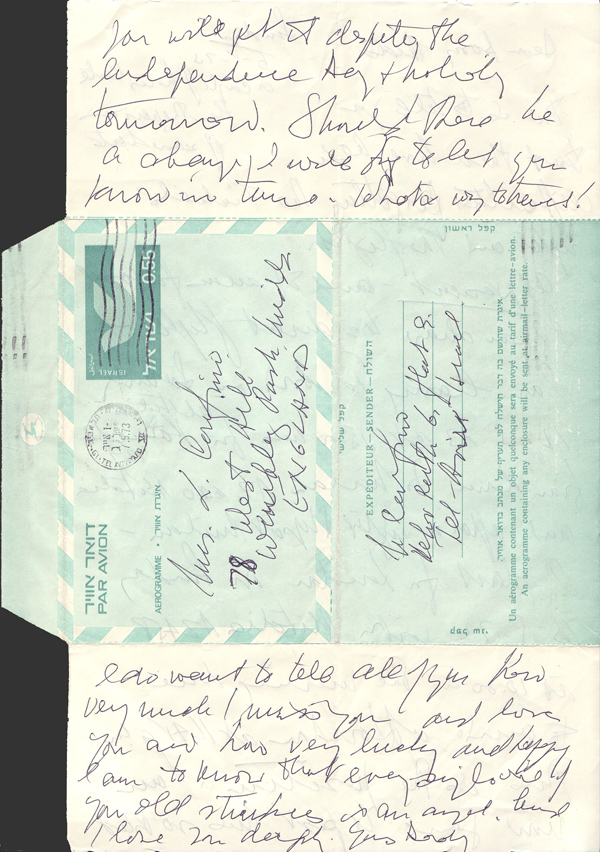 you will get it despite the
Independence Day & holiday
tomorrow. Should there be
a change, I will try to let you
know in time. What a way to travel!
קפל ושוארגו
0.55
ישראל
ISRAEL
7.5.73
Mrs. L. Confino
78 West Hill
Wembley Park Middx
ENGLAND
דואר אוויר
PAR AVION
AEROGRAMME • איגרת אוויר
קפל שלישי
EXPÉDITEUR — SENDER — השולח
Confino
Flat 8.
Tel-Aviv Israel
איגרת שהושם בה דבר תישלח לפי תעריף של מכתב בדואר אוויר.
Un aérogramme contenant un objet quelconque sera envoyé au tarif d'une lettre-avion.
An aerogramme containing any enclosure will be sent at airmail-letter rate.
קפל שני
I do want to tell all of you how
very much I miss you and love
you and how very lucky and happy
I am to know that every single one of
you old stinkers is an angel. and
I love you deeply. Yours